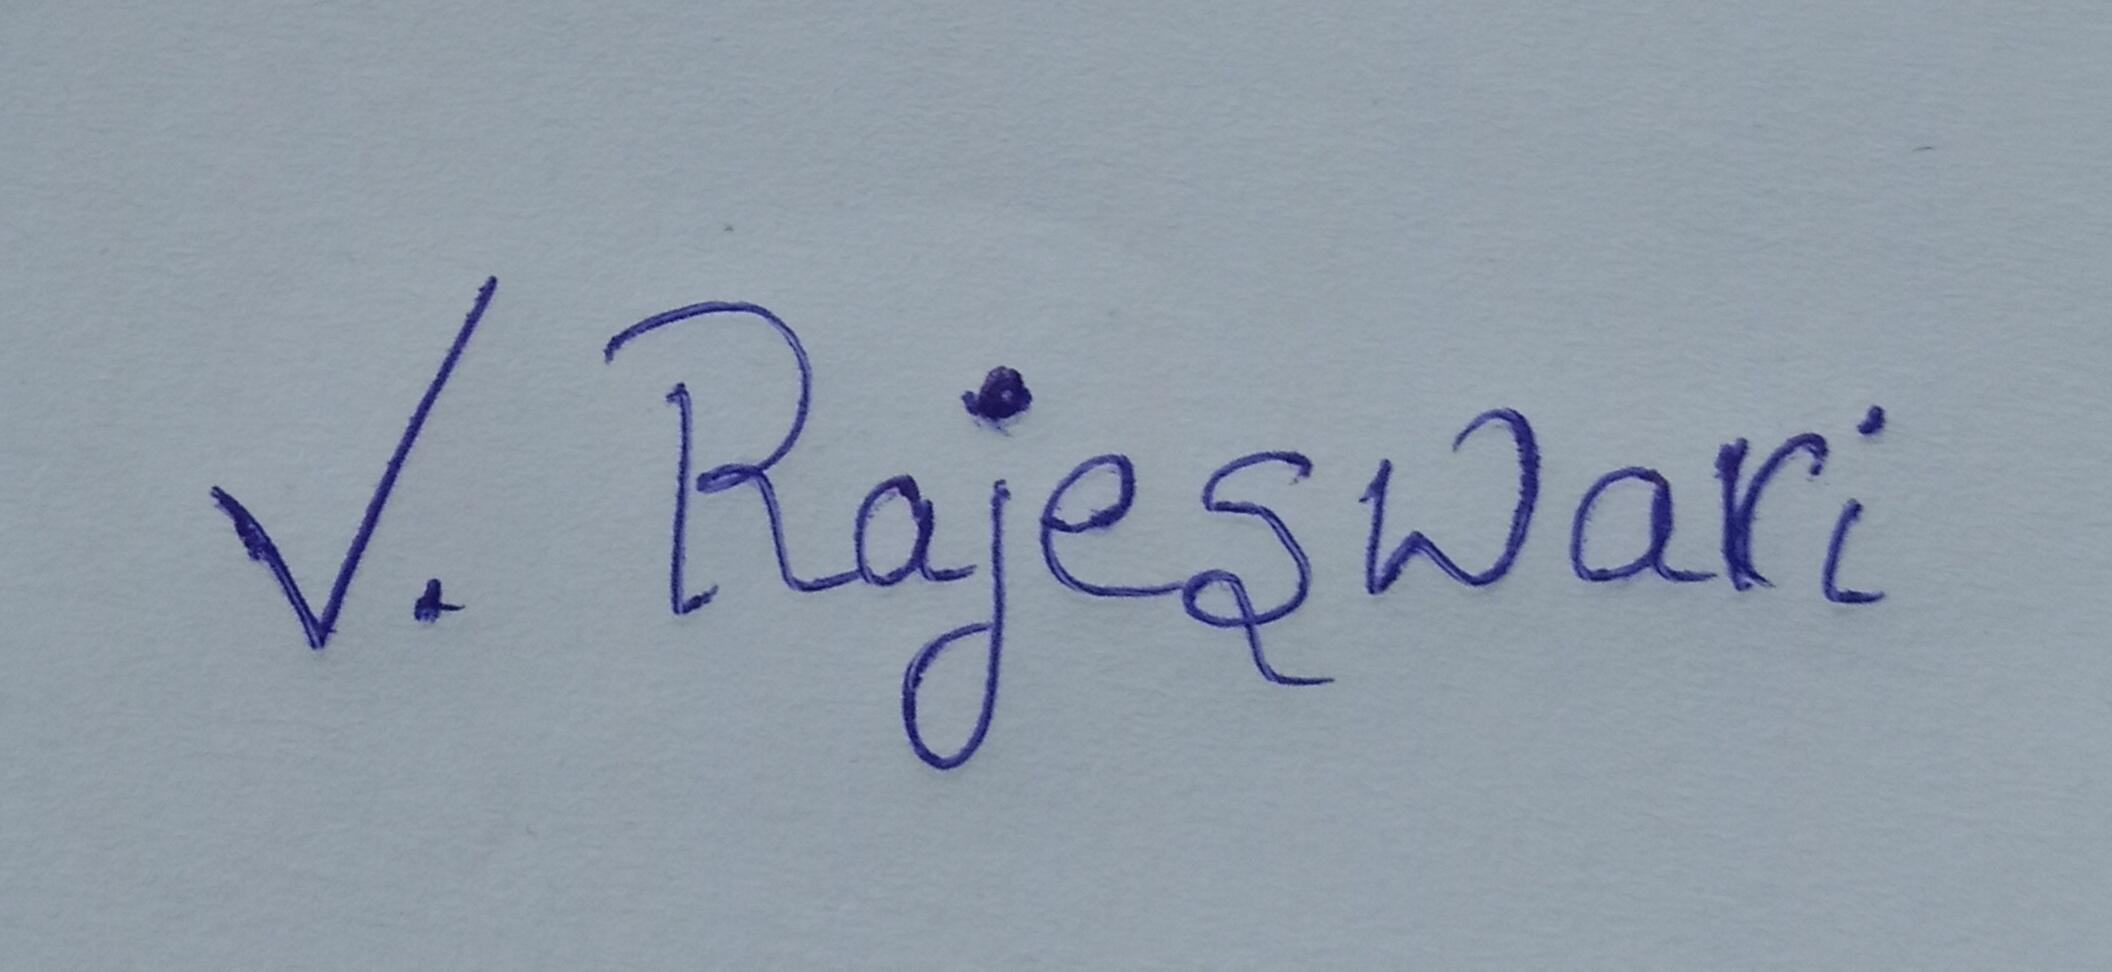 V. Rajeswari